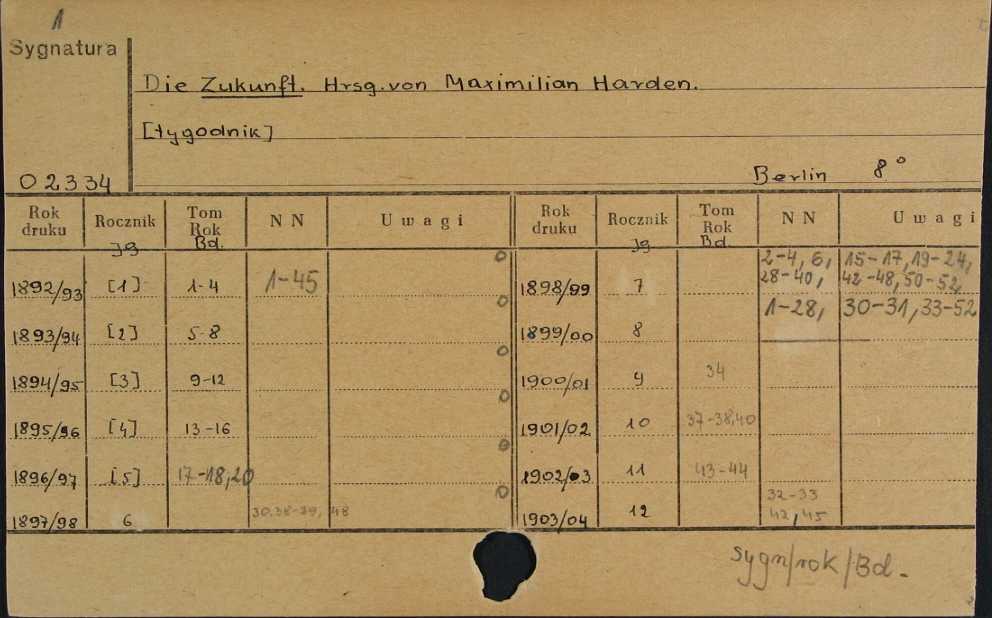 1
Sygnatura
Die Zukunft. Hrsg. von Maximilian Harden.
[tygodnik]
02334
Berlin 8°
Rok druku Rocznik Jg Tom Rok Bd. NN Uwagi Rok druku Rocznik Jg Tom Rok Bd. NN Uwagi
1892/93 [1] 1-4 1-45 1898/99 7 2-4, 6, 15-17, 19-24,
28-40, 42-48, 50-52
1893/94 [2] 5-8 1899/00 8 1-28, 30-31, 33-52
1894/95 [3] 9-12 1900/01 9 34
1895/96 [4] 13-16 1901/02 10 37-38,40
1896/97 [5] 17-18,20 1902/03 11 43-44
1897/98 6 30.38-39, 48 1903/04 12 32-33
42, 45
sygn/rok/Bd.